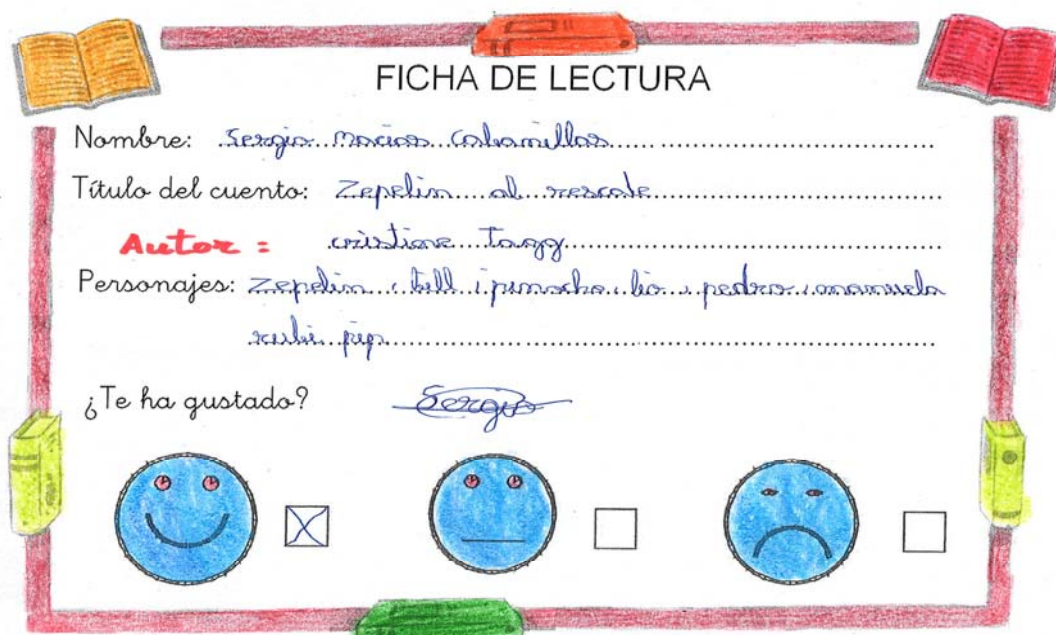 FICHA DE LECTURA
Nombre: Sergio Macias Cabanillas
Título del cuento: Zepelin al rescate
Autor = cristine Tagg
Personajes: Zepelin, bill i pinocha, lio, pedro, manuela
rubi pip
¿Te ha gustado? Sergio
X